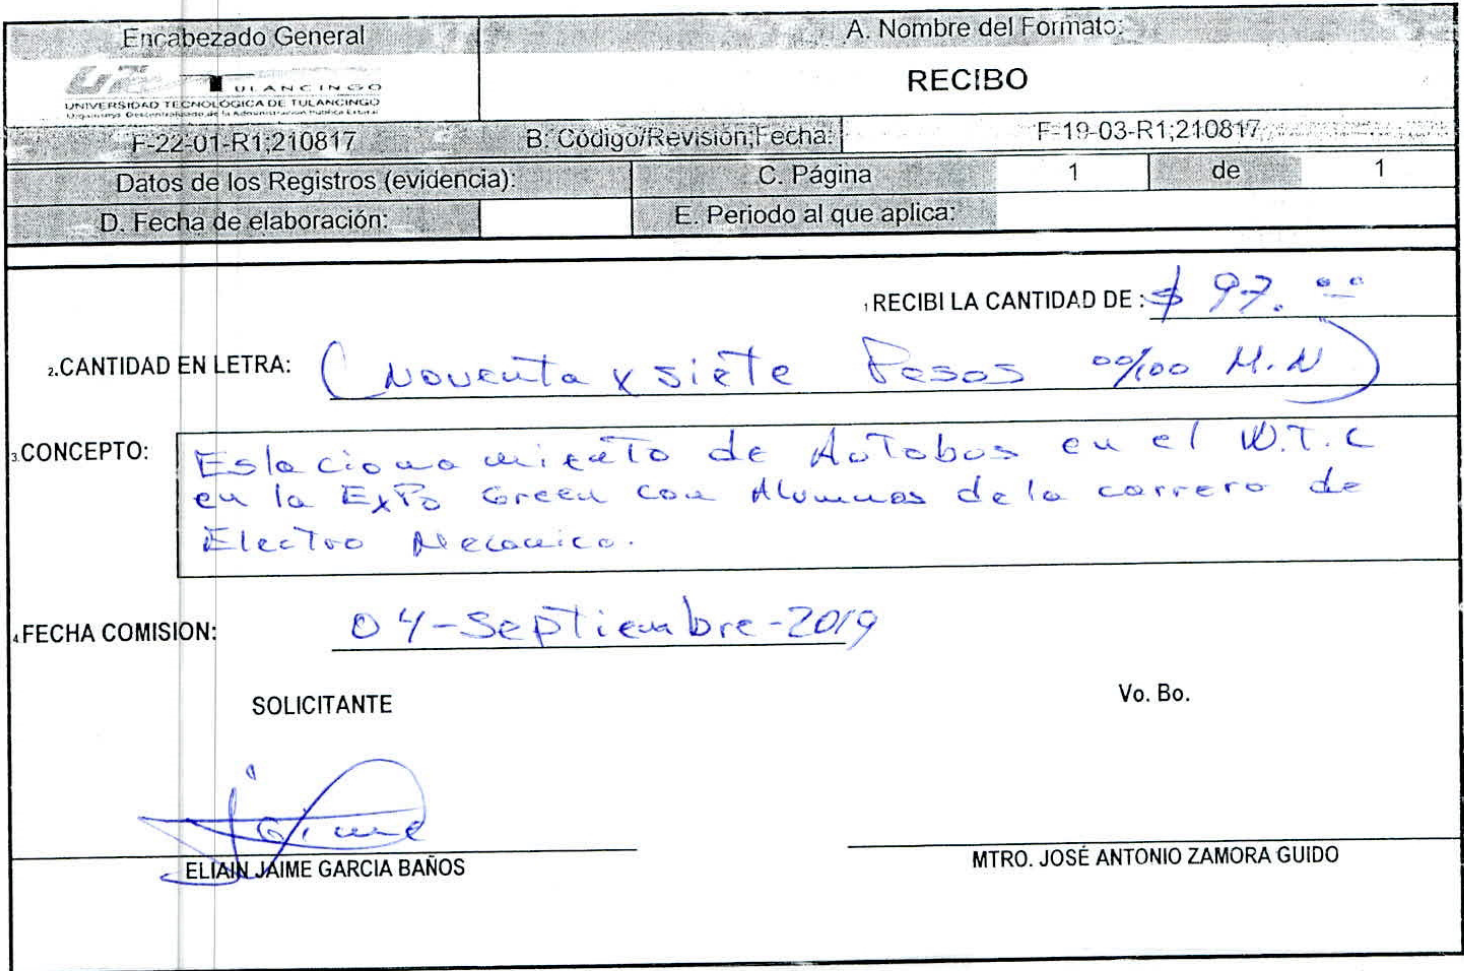 Encabezado General
A. Nombre del Formato:
TULANCINGO
UNIVERSIDAD TECNOLÓGICA DE TULANCINGO
Organismo Descentralizado de la Administración Pública Estatal
RECIBO
F-22-01-R1;210817
B. Código/Revisión;Fecha:
F-19-03-R1;210817
Datos de los Registros (evidencia):
C. Página
1
de
1
D. Fecha de elaboración:
E. Periodo al que aplica:
1 RECIBI LA CANTIDAD DE : $ 97.00
2.CANTIDAD EN LETRA: (Noventa y siete Pesos 00/100 M.N)
3.CONCEPTO: Estacionamiento de Autobus en el W.T.C
en la ExPo Green con Alumnos de la carrera de
Electro Mecanica.
4.FECHA COMISION: 04-Septiembre-2019
SOLICITANTE
Vo. Bo.
Jaime
ELIAIN JAIME GARCIA BAÑOS
MTRO. JOSÉ ANTONIO ZAMORA GUIDO